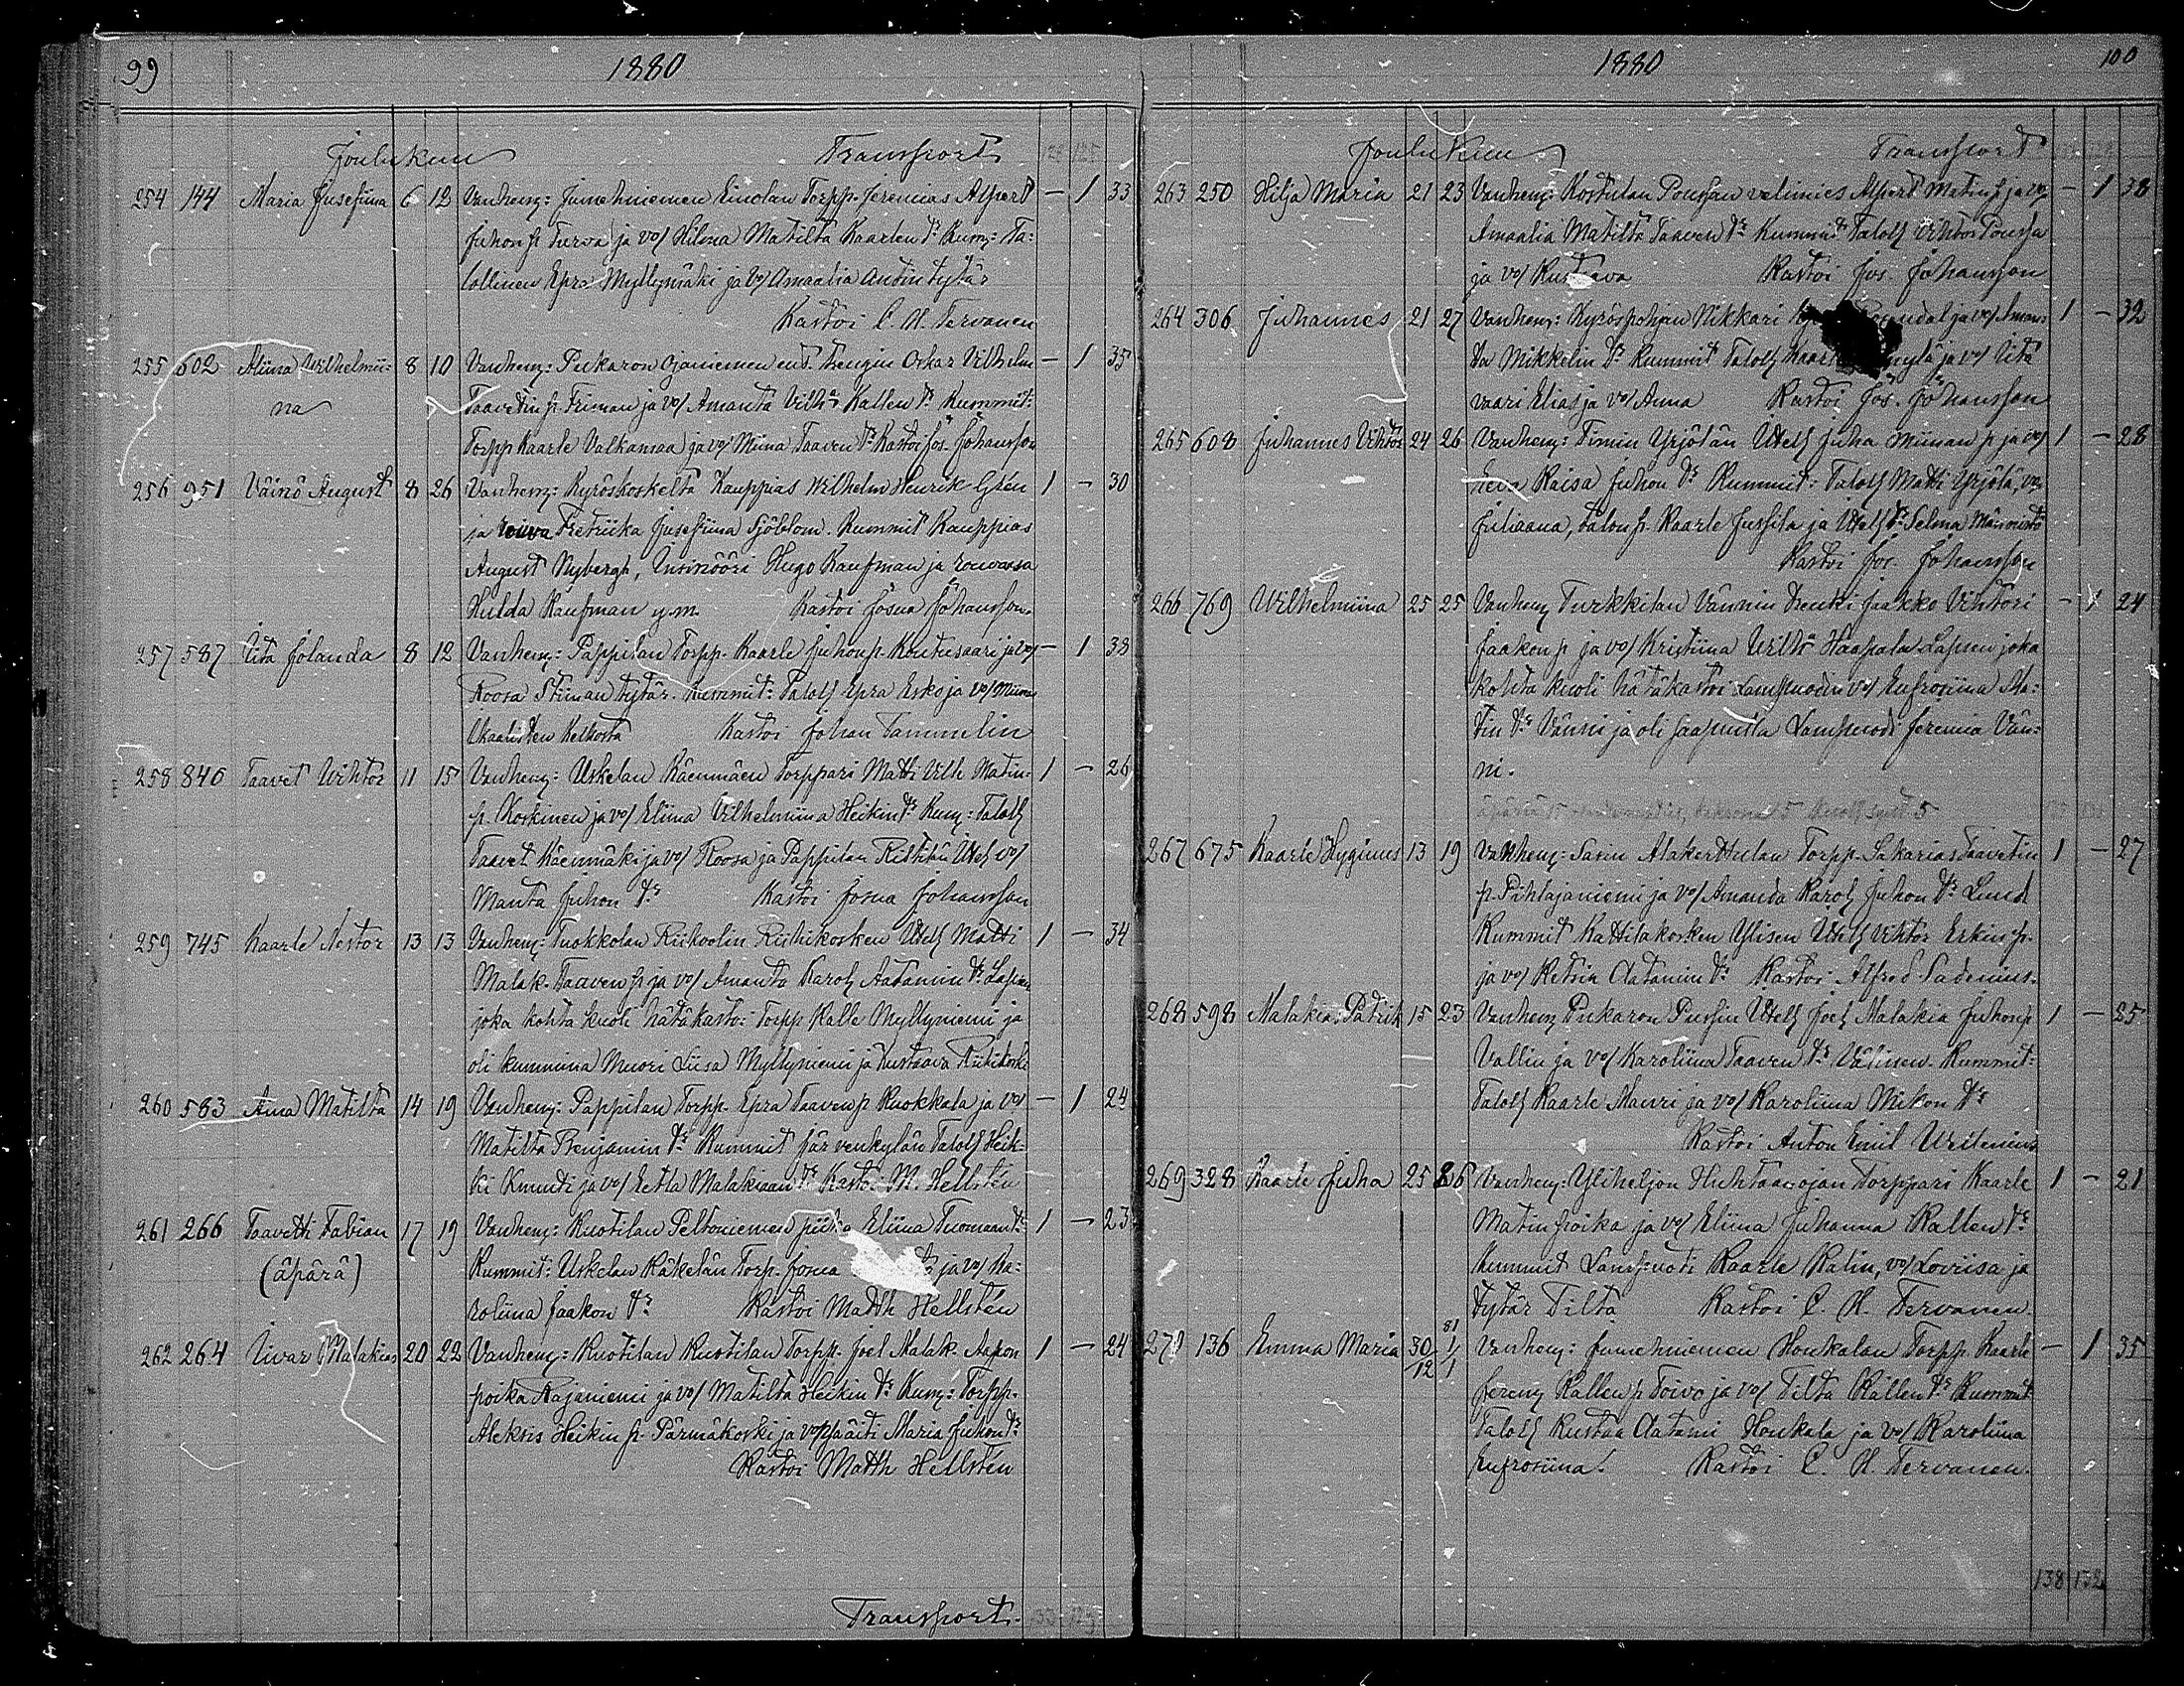 99 1880
Joulukuu Transport
254 144 Maria Josefiina 6 12 Vanhem: Jumehniemen Einolan Torpp. Jeremias Alpert — 1 33
Juhon p. Turva ja vo/ Hilma Matilta Kaarlen tr. Kumm: Ta:
lollinen Epra Myllymäki ja vo/ Amaalia Antin tytär
Kastoi C. H. Tervanen
255 602 Aliina Wilhelmii: 8 10 Vanhem: Pukaron Ojaniemen ent. trengin Oskar Vilhelm — 1 35
na Taavetin p. Friman ja vo/ Amanta Vilh:a Kallen tr. Kummit:
Torpp Kaarle Valkamaa ja vo/ Miina Taaven tr. Kastoi Jos. Johansson
256 951 Väinö August 8 26 Vanhem: Kyröskoskelta Kauppias Wilhelm Henrik Grén 1 — 30
ja rouva Fretriika Josefiina Sjöblom. Kummit Kauppias
August Nybergh, Insinööri Hugo Kaufman ja rouvassa
Hulda Kaufman y.m. Kastoi Josua Johansson.
257 587 Iita Jolanda 8 12 Vanhem: Pappilan Torpp. Kaarle Juhonp. Koutusaari ja vo/ — 1 38
Roosa Stiinan tytär. Kummit: Talolf Epra Esko ja vo/ Miina
Ikaalisten Kelkosta Kastoi Johan Tammelin
258 846 Taavet Wihtor 11 15 Vanhem: Uskelan Käenmäen Torppari Matti Vilh Matin- 1 — 26
p. Koskinen ja vo/ Eliina Vilhelmiina Heikin tr. Kum: Talolf
Taavet Käenmäki ja vo/ Roosa ja Pappilan Ristihu Itelf vo/
Manta Juhon tr. Kastoi Josua Johansson
259 745 Kaarle Nestor 13 13 Vanhem: Tuokkolan Riikoolin Riihikosken Itelf Matti 1 — 34
Malak. Taaven p ja vo/ Amanta Karol Aatamin tr. Lapsen
joka kohta kuoli hätäkastoi Torpp Kalle Myllyniemi ja
oli kummina Muori Liisa Myllyniemi ja Kustaava Riihikoski
260 583 Aina Matilta 14 19 Vanhem: Pappilan Torpp. Epra Taaven p Kuokkala ja vo/ — 1 24
Matilta Benjamin tr. Kummit Järvenkylän Talolf Heik-
ki Knuuti ja vo/ Eetla Malakiaan tr. Kastoi M. Hellstén
261 266 Taavetti Fabian 17 19 Vanhem: Kuotilan Peltoniemen piika Eliina Tuomaan tr. 1 — 23
(äpärä) Kummit: Uskelan Räkelän Torp. Josua ja vo/ Ka:
roliina Jaakon tr. Kastoi Matth Hellstén
262 264 Iivar Malakias 20 22 Vanhem: Kuotilan Kuotilan Torpp. Joel Malak. Aapon 1 — 24
poika Rajaniemi ja vo/ Matilta Heikin tr. Kum: Torpp.
Aleksis Heikin p. Pärmäkoski ja vo/ äiti Maria Juhon tr.
Kastoi Matth Hellstén
Transport.
1880 100
Joulukuu Transport
263 250 Hilja Maria 21 23 Vanhem: Kostulan Poussan välimies Alpert Matin p ja vo/ — 1 38
Amaalia Matilta Taaven tr. Kummit Talolf Vihtor Poussa
ja vo/ Kustava Kastoi Jos. Johansson
264 306 Juhannes 21 27 Vanhem: Kyröspohjan Nikkari ja vo/ Aman: 1 — 32
ta Mikkelin tr. Kummit Talolf Kaarle ja vo/ Iita
vaari Elias ja vo/ Anna Kastoi Jos. Johansson
265 608 Juhannes Vihtor 24 26 Vanhem: Timin Yrjölän Itelf Juha Miinan p ja vo/ 1 — 28
Eeva Kaisa Juhon tr. Kummit: Talolf Matti Yrjölä, vo/
Juliaana, talon p. Kaarle Jussila ja Itelf tr. Selma Männistö
Kastoi Jos. Johansson
266 769 Wilhelmiina 25 25 Vanhem Turkkilan Vännin Trenki Jaakko Vihtori — 1 24
Jaakon p ja vo/ Kristiina Vilh:a Haapala Lapsen joka
kohta kuoli hätäkastoi Lampuodin vo/ Eufrosiina Ma:
tin tr. Vänni ja oli saapuilla Lampuodi Jeremia Vän:
ni.
267 675 Kaarle Hyginus 13 19 Vanhem: Sasin Alakerttulan Torpp. Sakarias Taavetin 1 — 27
p. Pihlajaniemi ja vo/ Amanda Karol Juhon tr. Lund
Kummit Kattilakosken Ylisen Itelf Vihtor Erkin p.
ja vo/ Retriia Aatamin tr. Kastoi Alfred Sadenius.
268 598 Malakias Patrik 15 23 Vanhem Pukaron Pussin Itelf Joel Malakia Juhonp 1 — 25
Vallin ja vo/ Karoliina Taaven tr. Välinen. Kummit:
Talolf Kaarle Mauri ja vo/ Karoliina Mikon tr.
Kastoi Anton Emil Writenius
269 328 Kaarle Juha 25 26 Vanhem: Yliheljon Huhtaanojan Torppari Kaarle 1 — 21
Matin poika ja vo/ Eliina Juhanna Kallen tr.
Kummit Lampuoti Kaarle Kalin, vo/ Loviisa ja
tytär Tilta Kastoi C. H. Tervanen.
270 136 Emma Maria 30/12 81 1/1 Vanhem: Jumehniemen Honkalan Torpp. Kaarle — 1 35
Jerem Kallen p Toivo ja vo/ Tilta Kallen tr. Kummit
Talolf Kustaa Aatami Honkala ja vo/ Karoliina
Eufrosiina. Kastoi C. H. Tervanen.
138 132